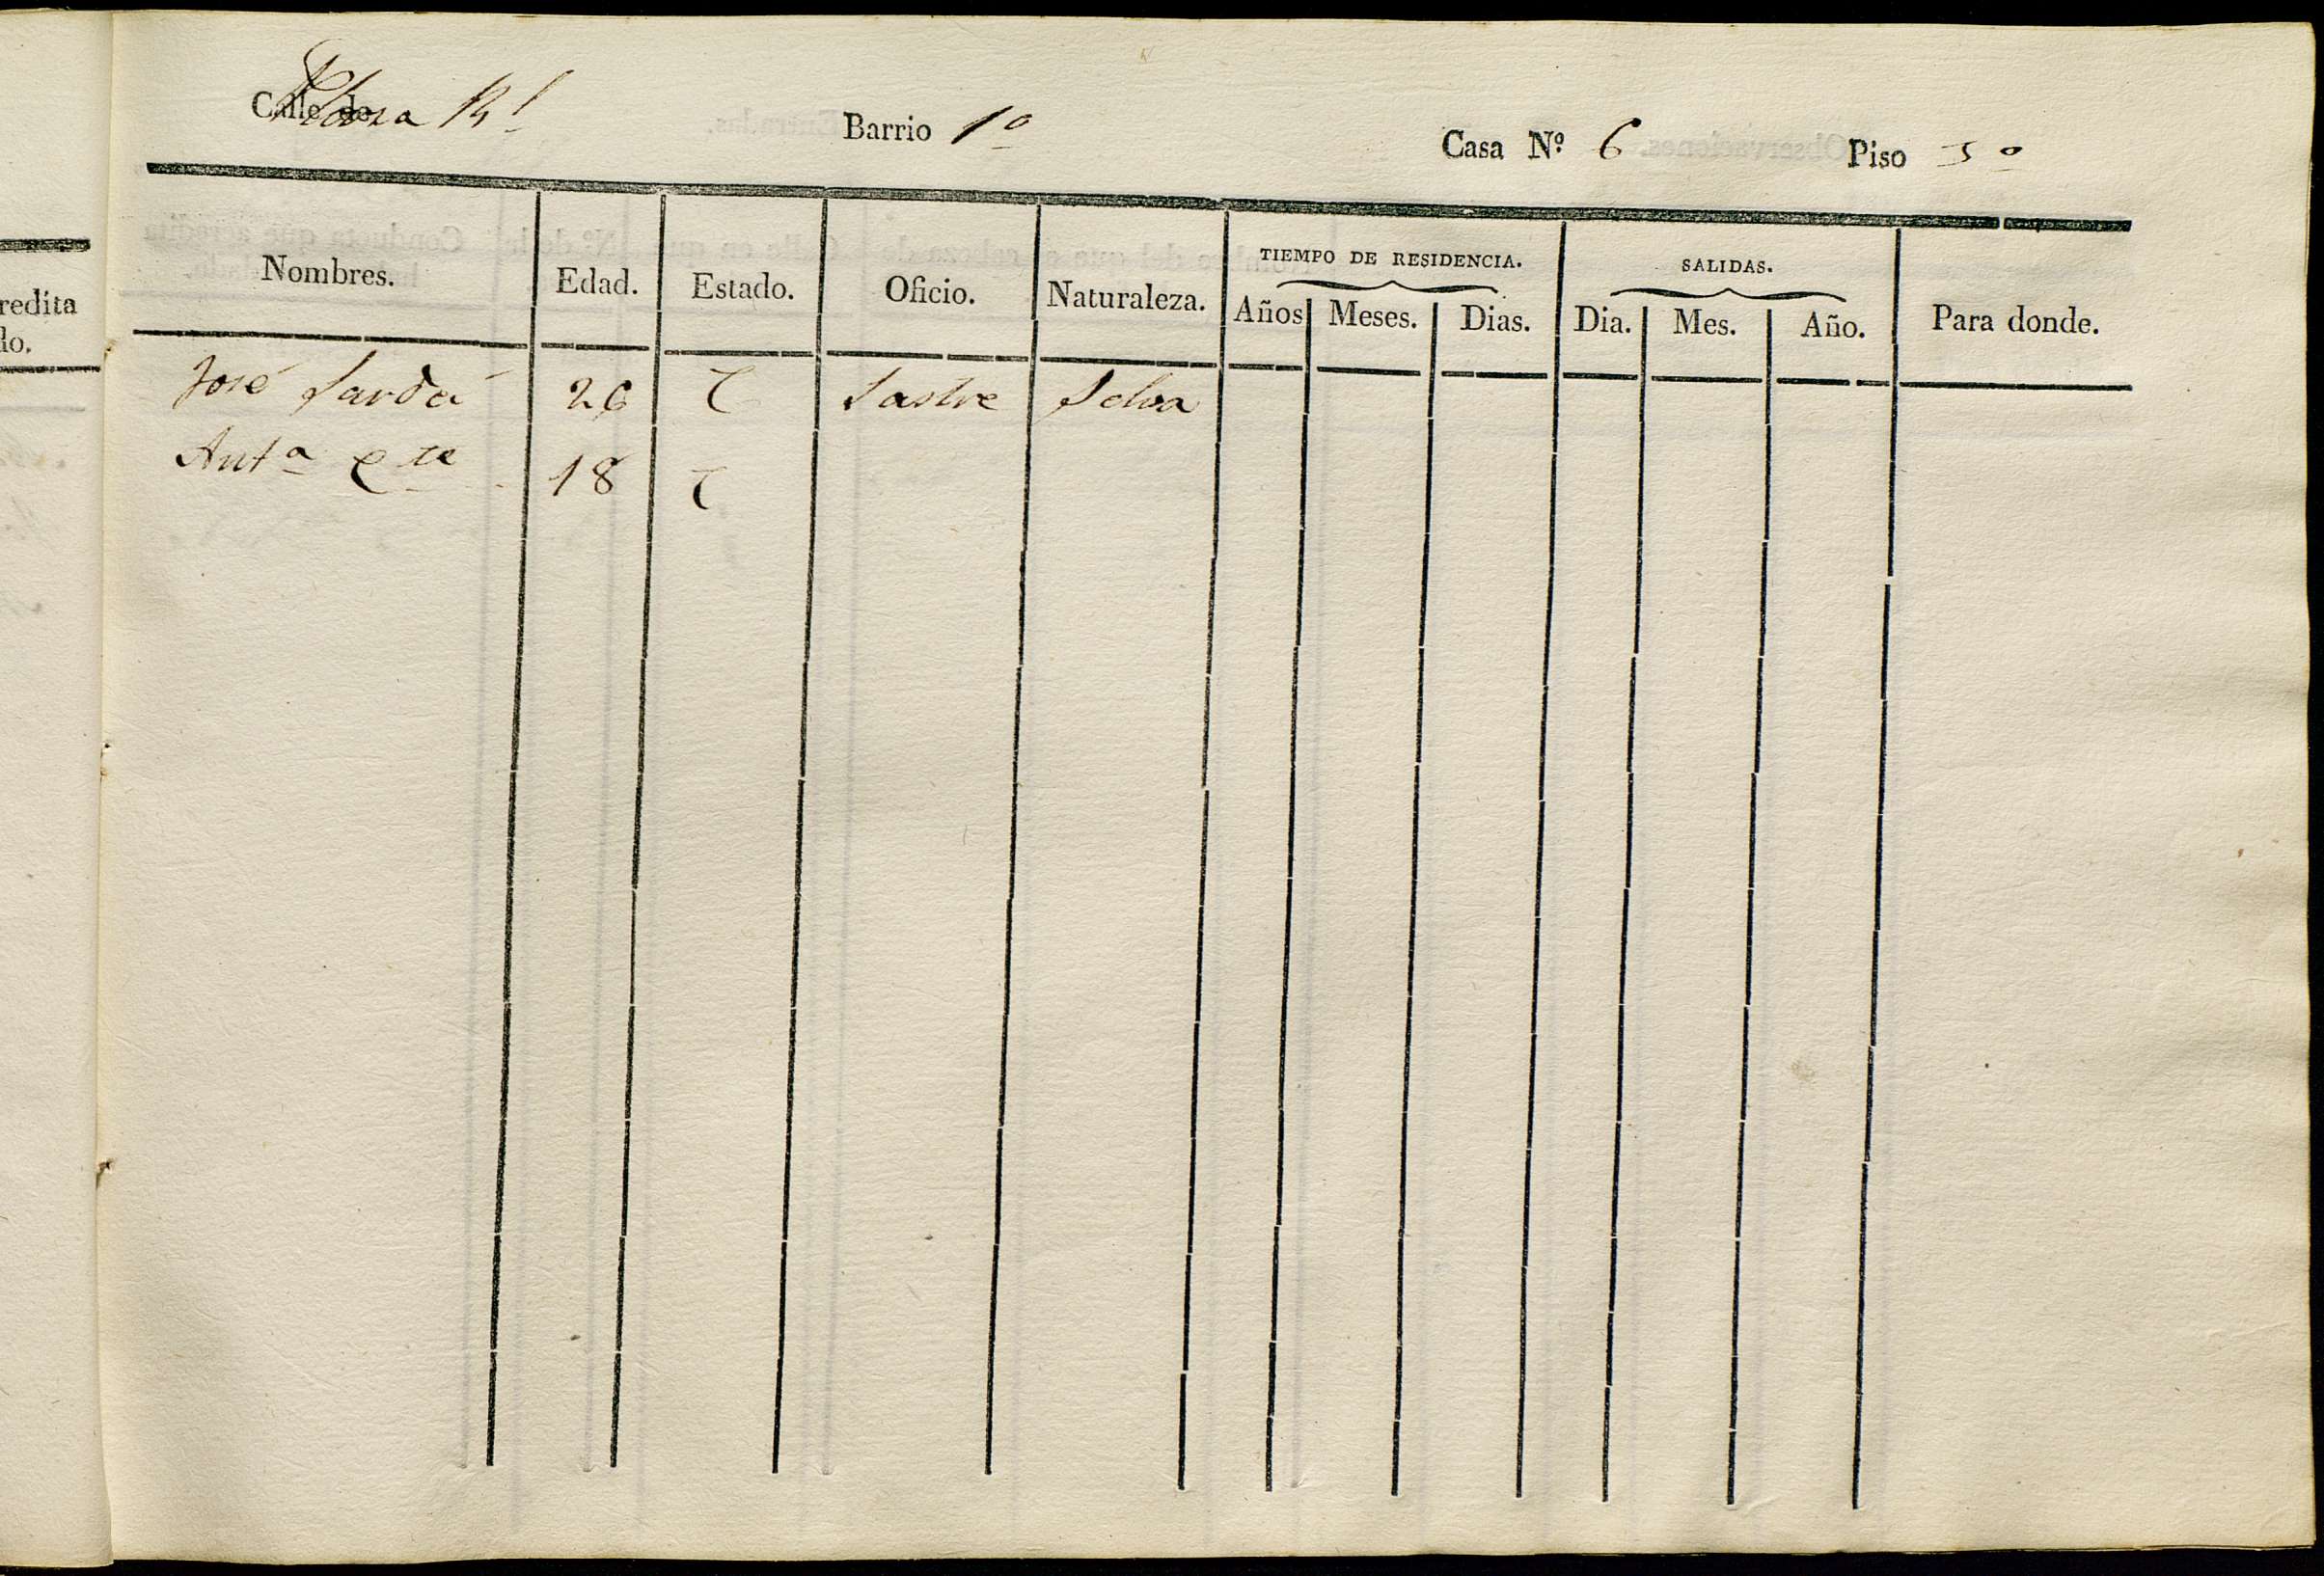 Calle de Plaza Rl. Barrio 1o Casa N.º 6 Piso 3o
Nombres. Edad. Estado. Oficio. Naturaleza. TIEMPO DE RESIDENCIA. Años Meses. Dias. SALIDAS. Dia. Mes. Año. Para donde.
José Sardá 26 C Sastre Selva
Anta 18 C
redita
do.